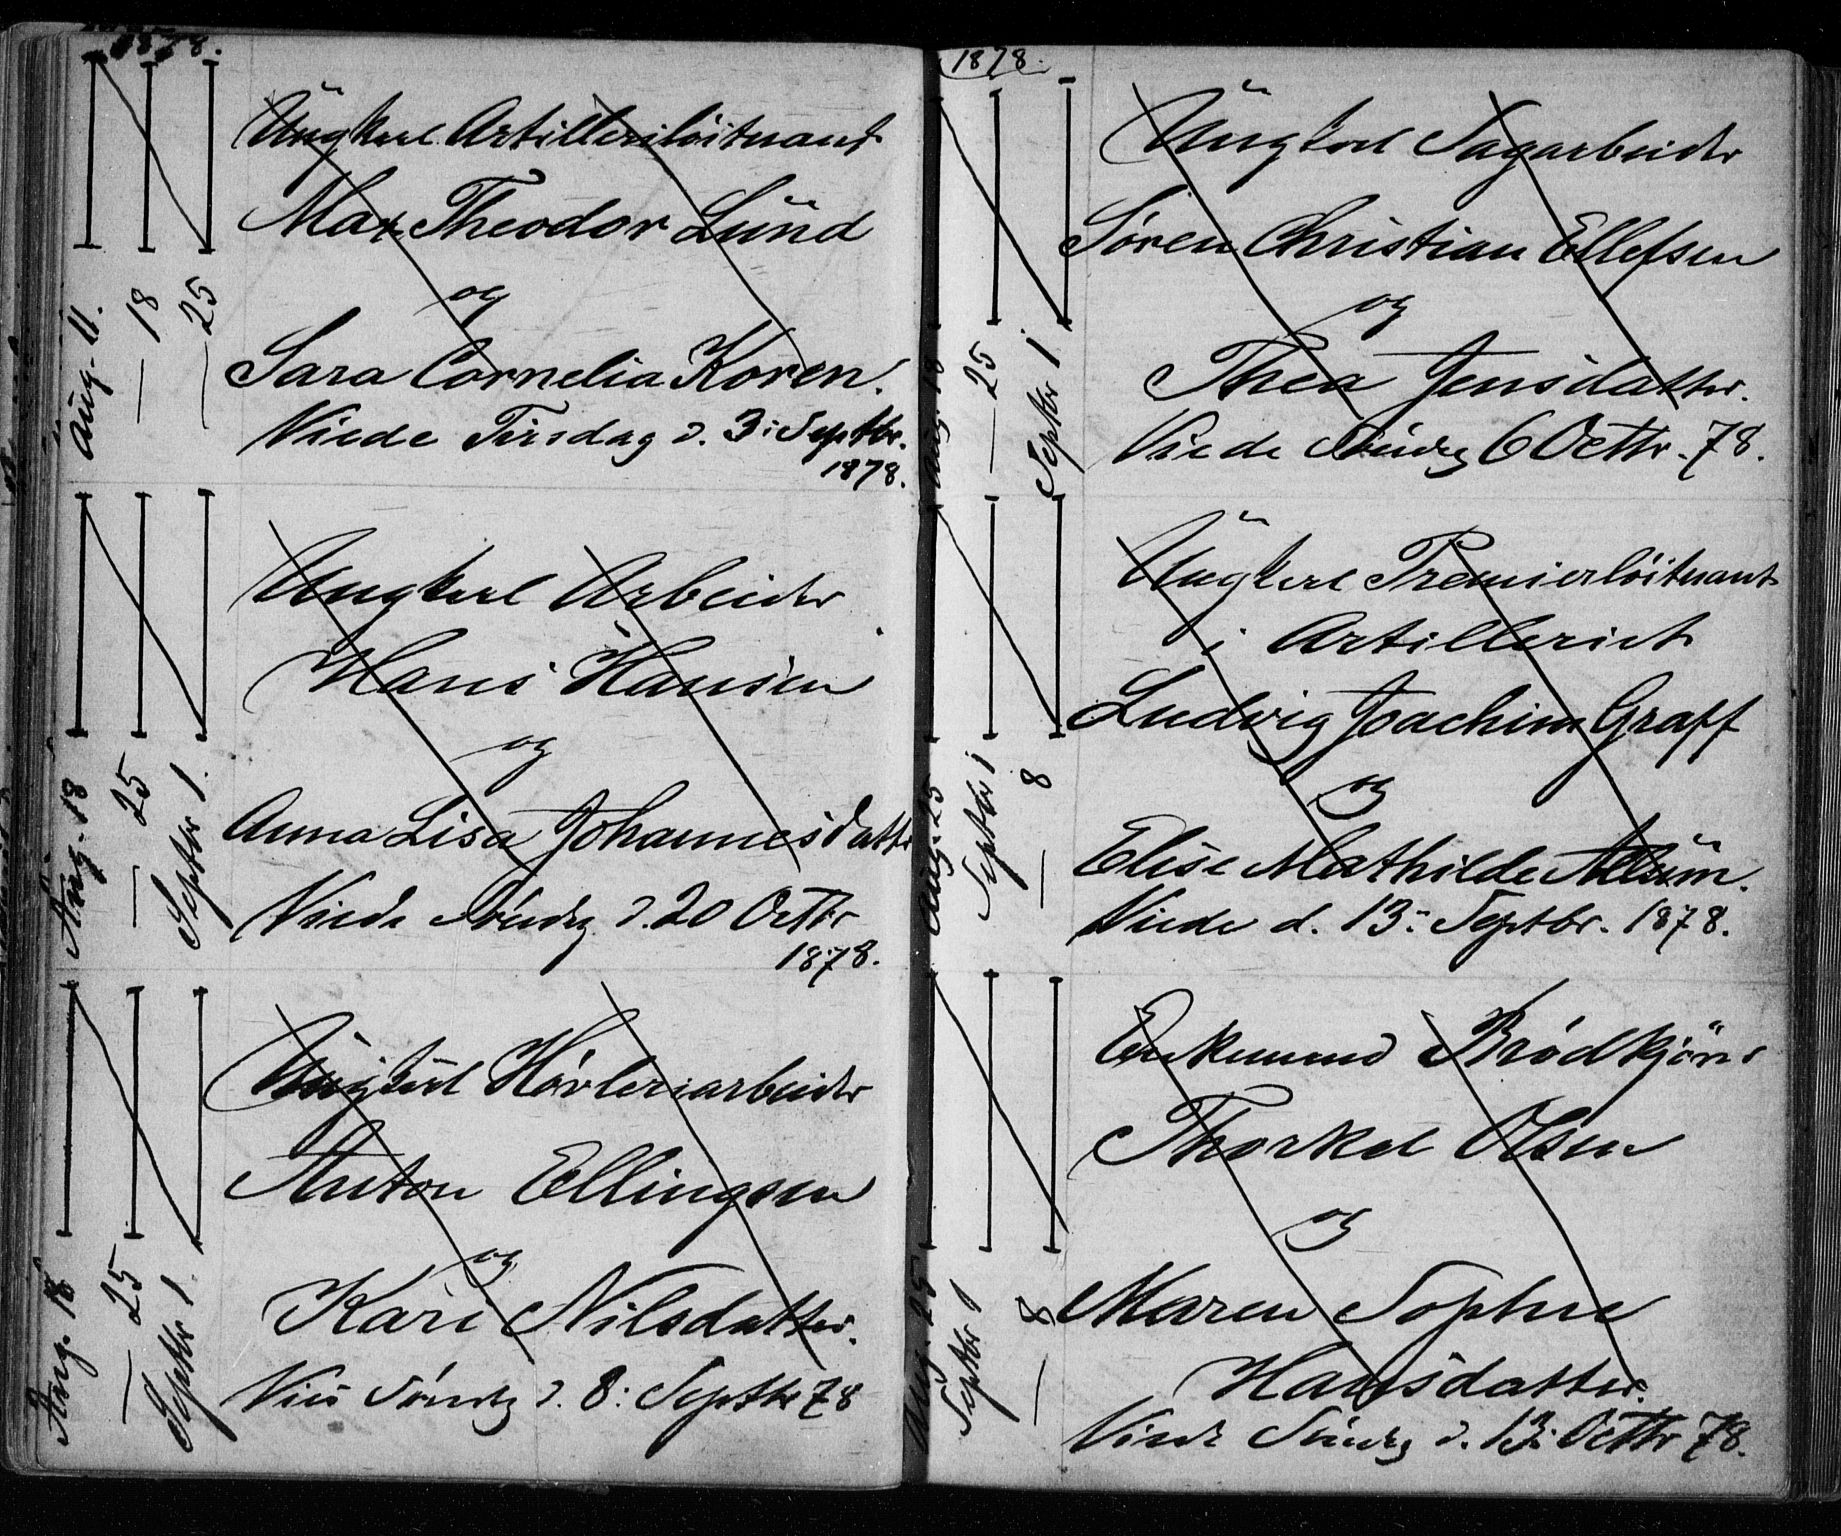 1878.
Aug. 11.
— 18
— 25
Ungkarl Artilleriløitnant
Max Theodor Lund
og
Sara Cornelia Koren.
Viede Tirsdag d. 3: Septbr.
1878.
Aug. 18
— 25
Septbr 1.
Ungkarl Arbeider
Hans Hansen
og
Anna Lisa Johannesdatter
Viede Søndag d. 20 Octbr
1878.
Aug. 18
— 25
Septbr 1.
Ungkarl Høvleriarbeider
Anton Ellingsen
og
Kari Nilsdatter.
Søndag d. 8: Septbr 78
1878.
Aug. 18
— 25
Septbr 1
Ungkarl Sagarbeider
Søren Christian Ellefsen
og
Thea Jensdatter.
Viede Søndag 6 Octbr. 78.
Aug. 25
Septbr 1
— 8
Ungkarl Premierløitnant
i Artilleriet
Ludvig Joachim Graff
og
Elise Mathilde Allum.
Viede d. 13: Septbr. 1878.
Aug. 25
Septbr 1
— 8
Enkemand
Thorkel Olsen
og
Maren Sophie
Hansdatter.
Viede Søndag d. 13: Octbr 78.